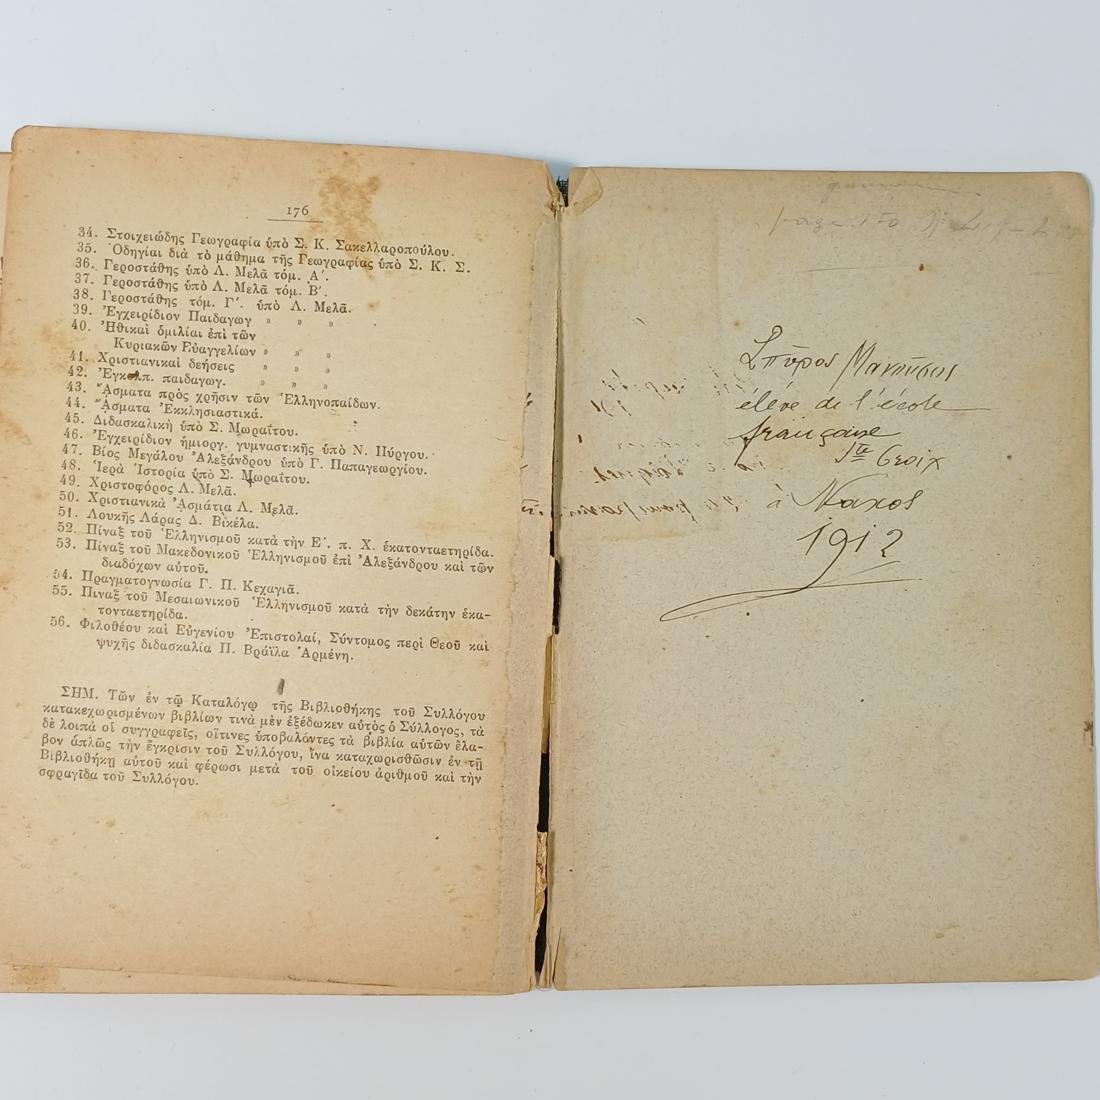 176
34. Στοιχειώδης Γεωγραφία ὑπὸ Σ. Κ. Σακελλαροπούλου.
35. Ὁδηγίαι διὰ τὸ μάθημα τῆς Γεωγραφίας ὑπὸ Σ. Κ. Σ.
36. Γεροστάθης ὑπὸ Λ. Μελᾶ τόμ. Α΄.
37. Γεροστάθης ὑπὸ Λ. Μελᾶ τόμ. Β΄.
38. Γεροστάθης τόμ. Γ΄. ὑπὸ Λ. Μελᾶ.
39. Ἐγχειρίδιον Παιδαγωγ » » »
40. Ἠθικαὶ ὁμιλίαι ἐπὶ τῶν
Κυριακῶν Εὐαγγελίων » » »
41. Χριστιανικαὶ δεήσεις » » »
42. Ἐγκολπ. παιδαγωγ. » » »
43. Ἄσματα πρὸς χρῆσιν τῶν Ἑλληνοπαίδων.
44. Ἄσματα Ἐκκλησιαστικά.
45. Διδασκαλικὴ ὑπὸ Σ. Μωραΐτου.
46. Ἐγχειρίδιον ἡμιοργ. γυμναστικῆς ὑπὸ Ν. Πύργου.
47. Βίος Μεγάλου Ἀλεξάνδρου ὑπὸ Γ. Παπαγεωργίου.
48. Ἱερὰ Ἱστορία ὑπὸ Σ. Μωραΐτου.
49. Χριστοφόρος Λ. Μελᾶ.
50. Χριστιανικὰ Ἀσμάτια Λ. Μελᾶ.
51. Λουκῆς Λάρας Δ. Βικέλα.
52. Πίναξ τοῦ Ἑλληνισμοῦ κατὰ τὴν Ε΄. π. Χ. ἑκατονταετηρίδα.
53. Πίναξ τοῦ Μακεδονικοῦ Ἑλληνισμοῦ ἐπὶ Ἀλεξάνδρου καὶ τῶν
διαδόχων αὐτοῦ.
54. Πραγματογνωσία Γ. Π. Κεχαγιᾶ.
55. Πιναξ τοῦ Μεσαιωνικοῦ Ἑλληνισμοῦ κατὰ τὴν δεκάτην ἑκα-
τονταετηρίδα.
56. Φιλοθέου καὶ Εὐγενίου Ἐπιστολαί, Σύντομος περὶ Θεοῦ καὶ
ψυχῆς διδασκαλία Π. Βράϊλα Ἀρμένη.
ΣΗΜ. Τῶν ἐν τῷ Καταλόγῳ τῆς Βιβλιοθήκης τοῦ Συλλόγου
κατακεχωρισμένων βιβλίων τινὰ μὲν ἐξέδωκεν αὐτὸς ὁ Σύλλογος, τὰ
δὲ λοιπὰ οἱ συγγραφεῖς, οἵτινες ὑποβαλόντες τὰ βιβλία αὐτῶν ἔλα-
βον ἁπλῶς τὴν ἔγκρισιν τοῦ Συλλόγου, ἵνα καταχωρισθῶσιν ἐν τῇ
Βιβλιοθήκῃ αὐτοῦ καὶ φέρωσι μετὰ τοῦ οἰκείου ἀριθμοῦ καὶ τὴν
σφραγῖδα τοῦ Συλλόγου.
page
Σπῦρος Μανοῦσος
élève de l'école
française
Ste Croix
à Naxos
1912